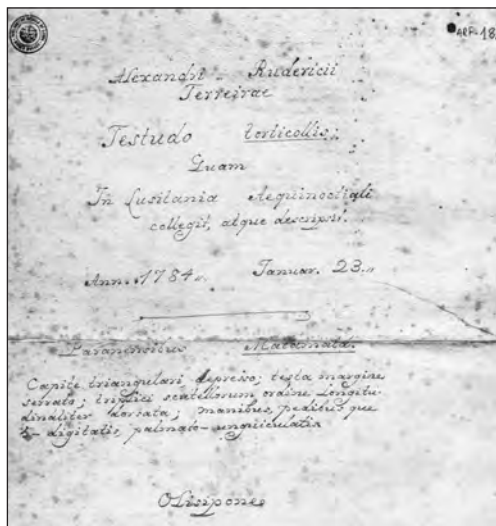 ARP-18
Alexandri Rudericii
Ferreirae
Testudo torticollis;
Quam
In Lusitania Aequinoctiali
collegit, atque descripsit.
Ann. 1784. Januar. 23.
Paraponsibus Matamata.
Capite triangulari depresso; testa margine
serrato; triplici scutellorum ordine Longitu-
dinaliter; manibus, pedibusque
5-digitatis, palmato-unguiculatis
Olisipone